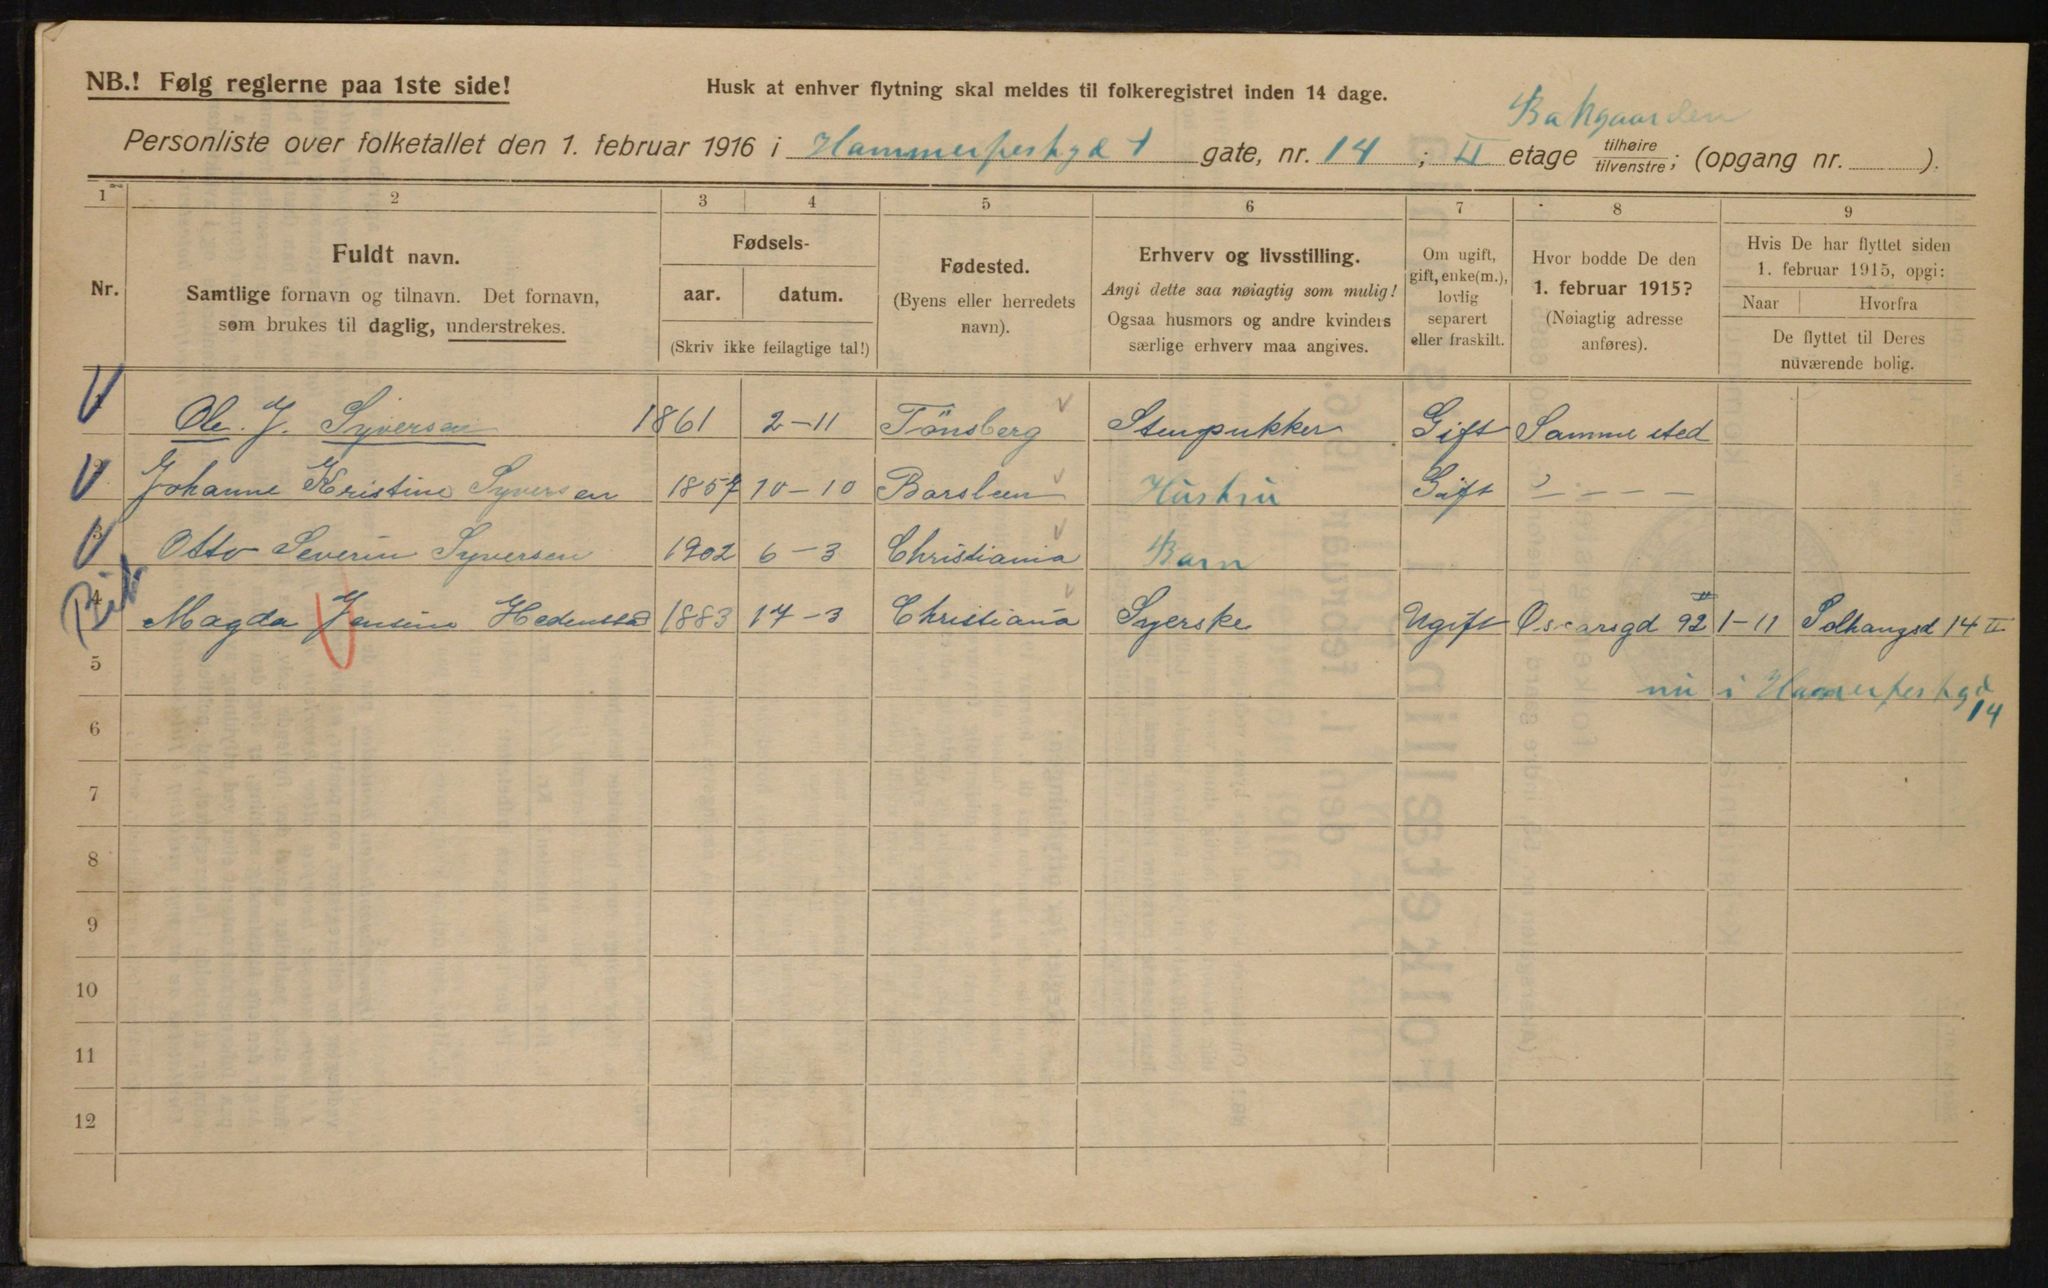 NB.! Følg reglerne paa 1ste side!
Husk at enhver flytning skal meldes til folkeregistret inden 14 dage.
Bakgaarden
Personliste over folketallet den 1. februar 1916 i Hammerfestgd 1 gate, nr. 14 ; II etage tilhøire tilvenstre; (opgang nr. ).
1 2 3 4 5 6 7 8 9
Nr.
Fuldt navn.
Samtlige fornavn og tilnavn. Det fornavn,
som brukes til daglig, understrekes.
Fødsels-
aar. datum.
(Skriv ikke feilagtige tal!)
Fødested.
(Byens eller herredets
navn).
Erhverv og livsstilling.
Angi dette saa nøiagtig som mulig!
Ogsaa husmors og andre kvinders
særlige erhverv maa angives.
Om ugift,
gift, enke(m.),
lovlig
separert
eller fraskilt.
Hvor bodde De den
1. februar 1915?
(Nøiagtig adresse
anføres).
Hvis De har flyttet siden
1. februar 1915, opgi:
Naar Hvorfra
De flyttet til Deres
nuværende bolig.
Ole. J. Syversen 1861 2-11 Tönsberg Stenpukker Gift Samme sted
Johanne Kristine Syversen 1857 10-10 Gift
Hustru
3 Otto Severin Syversen 1902 6-3 Christiania Barn
4 Magda Jensine Hedenstad 1883 17-3 Christiania Syerske Ugift Oscarsgd 92 II 1-11 Solhaugsd 14 II
5 nu i Hammerfestgd 14
6
7
8
9
10
11
12